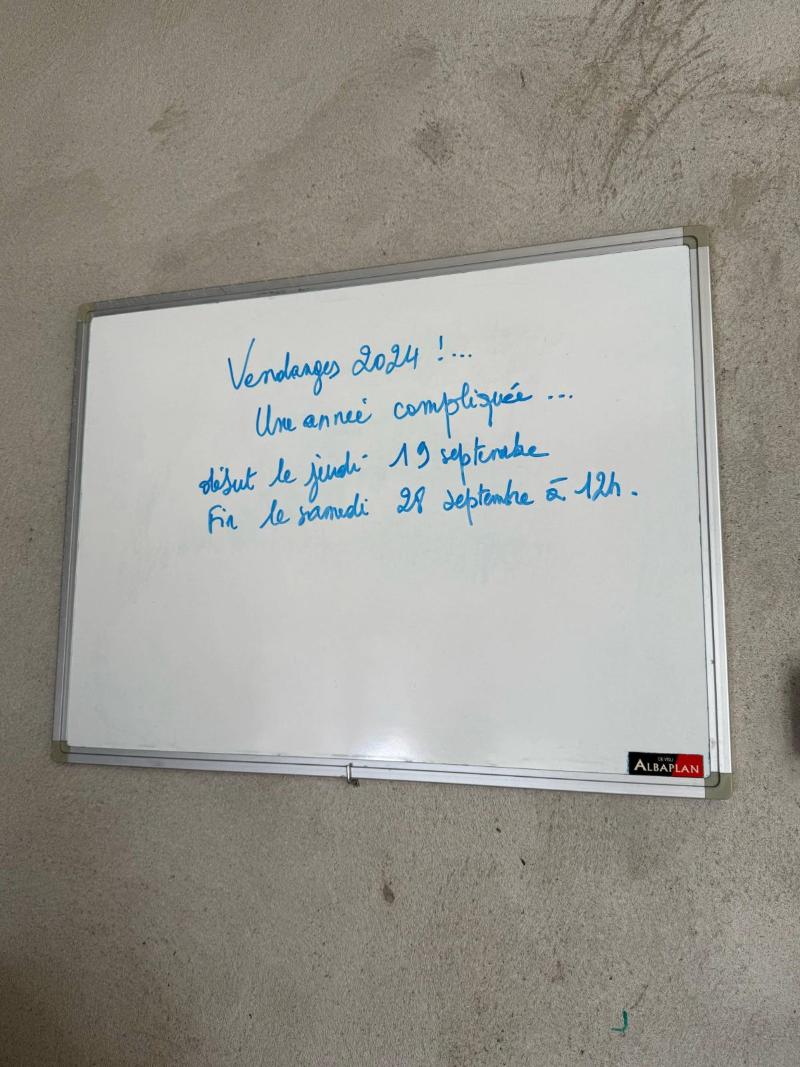 Vendanges 2024 !...
Une année compliquée ...
début le jeudi 19 septembre
Fin le samedi 28 septembre à 12h.
ALBAPLAN